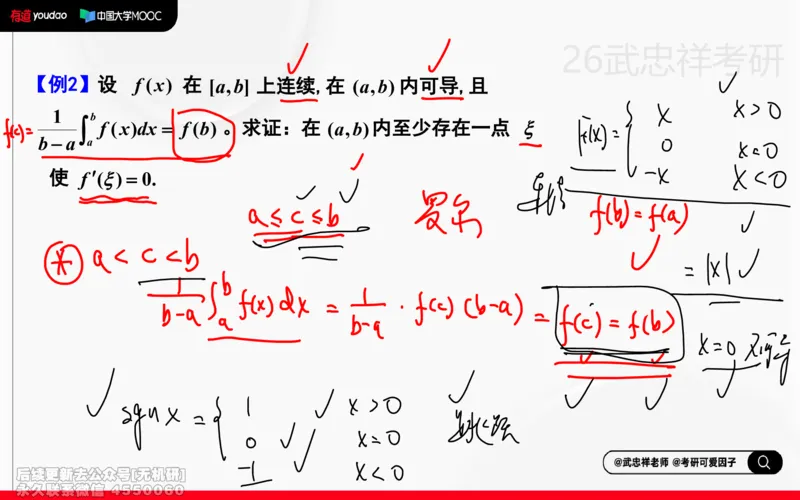 有道 youdao 中国大学MOOC
26武忠祥考研
【例2】设 f(x) 在 [a,b] 上连续, 在 (a,b) 内可导, 且
f(c)= 1/(b−a) ∫_a^b f(x)dx = f(b) 。求证：在 (a,b) 内至少存在一点 ξ
使 f′(ξ)=0.
F(x)= { x x>0
0 x=0
−x x<0
a≤c≤b 罗尔 f(b)=f(a)
= |x|
* a<c<b
1/(b−a) ∫_a^b f(x)dx = 1/(b−a) · f(c)(b−a) = f(c)=f(b)
x=0
sgn x = { 1 x>0
0 x=0
−1 x<0
@武忠祥老师 @考研可爱因子
后续更新去公众号[无机研]
永久联系微信 4550060